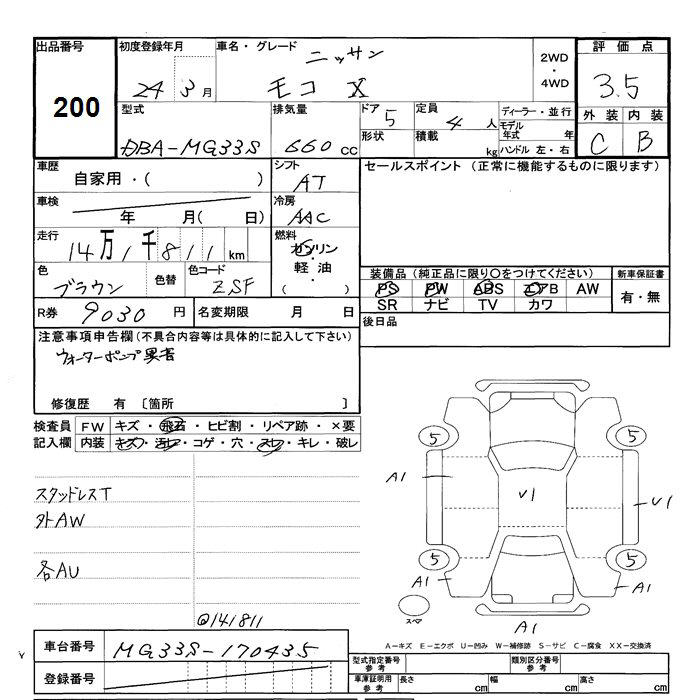 出品番号 初度登録年月 車名・グレード ニッサン 2WD 評価点
200 24 3月 モコ X ・ 3.5
4WD
型式 排気量 ドア 5 定員 4人 ディーラー・並行 外装 内装
DBA-MG33S 660cc 形状 積載 kg モデル年式 年 C B
ハンドル 左・右
車歴 シフト セールスポイント (正常に機能するものに限ります)
自家用・( ) AT
車検 冷房
年 月( 日) AAC
走行 燃料
14万1千811km ガソリン
・
軽油
・
( )
色 色替 色コード 装備品 (純正品に限り〇をつけてください) 新車保証書
ブラウン ZSF PS PW ABS エアB AW 有・無
SR ナビ TV カワ
R券 9030円 名変期限 月 日 後日品
注意事項申告欄(不具合内容等は具体的に記入して下さい)
ウォーターポンプ異音
修復歴 有 〔箇所 〕
検査員 FW キズ・飛石・ヒビ割・リペア跡・×要
記入欄 内装 キズ・汚レ・コゲ・穴・スレ・キレ・破レ
スタッドレスT
外AW
各AU
@141811
5 5
A1 V1 V1
5 5
A1 A1
スペア
A1
A-キズ E-エクボ U-凹み W-補修跡 S-サビ C-腐食 XX-交換済
車台番号 MG33S-170435
登録番号
型式指定番号 参考 類別区分番号 参考
車庫証明用 参考 長さ cm 幅 cm 高さ cm